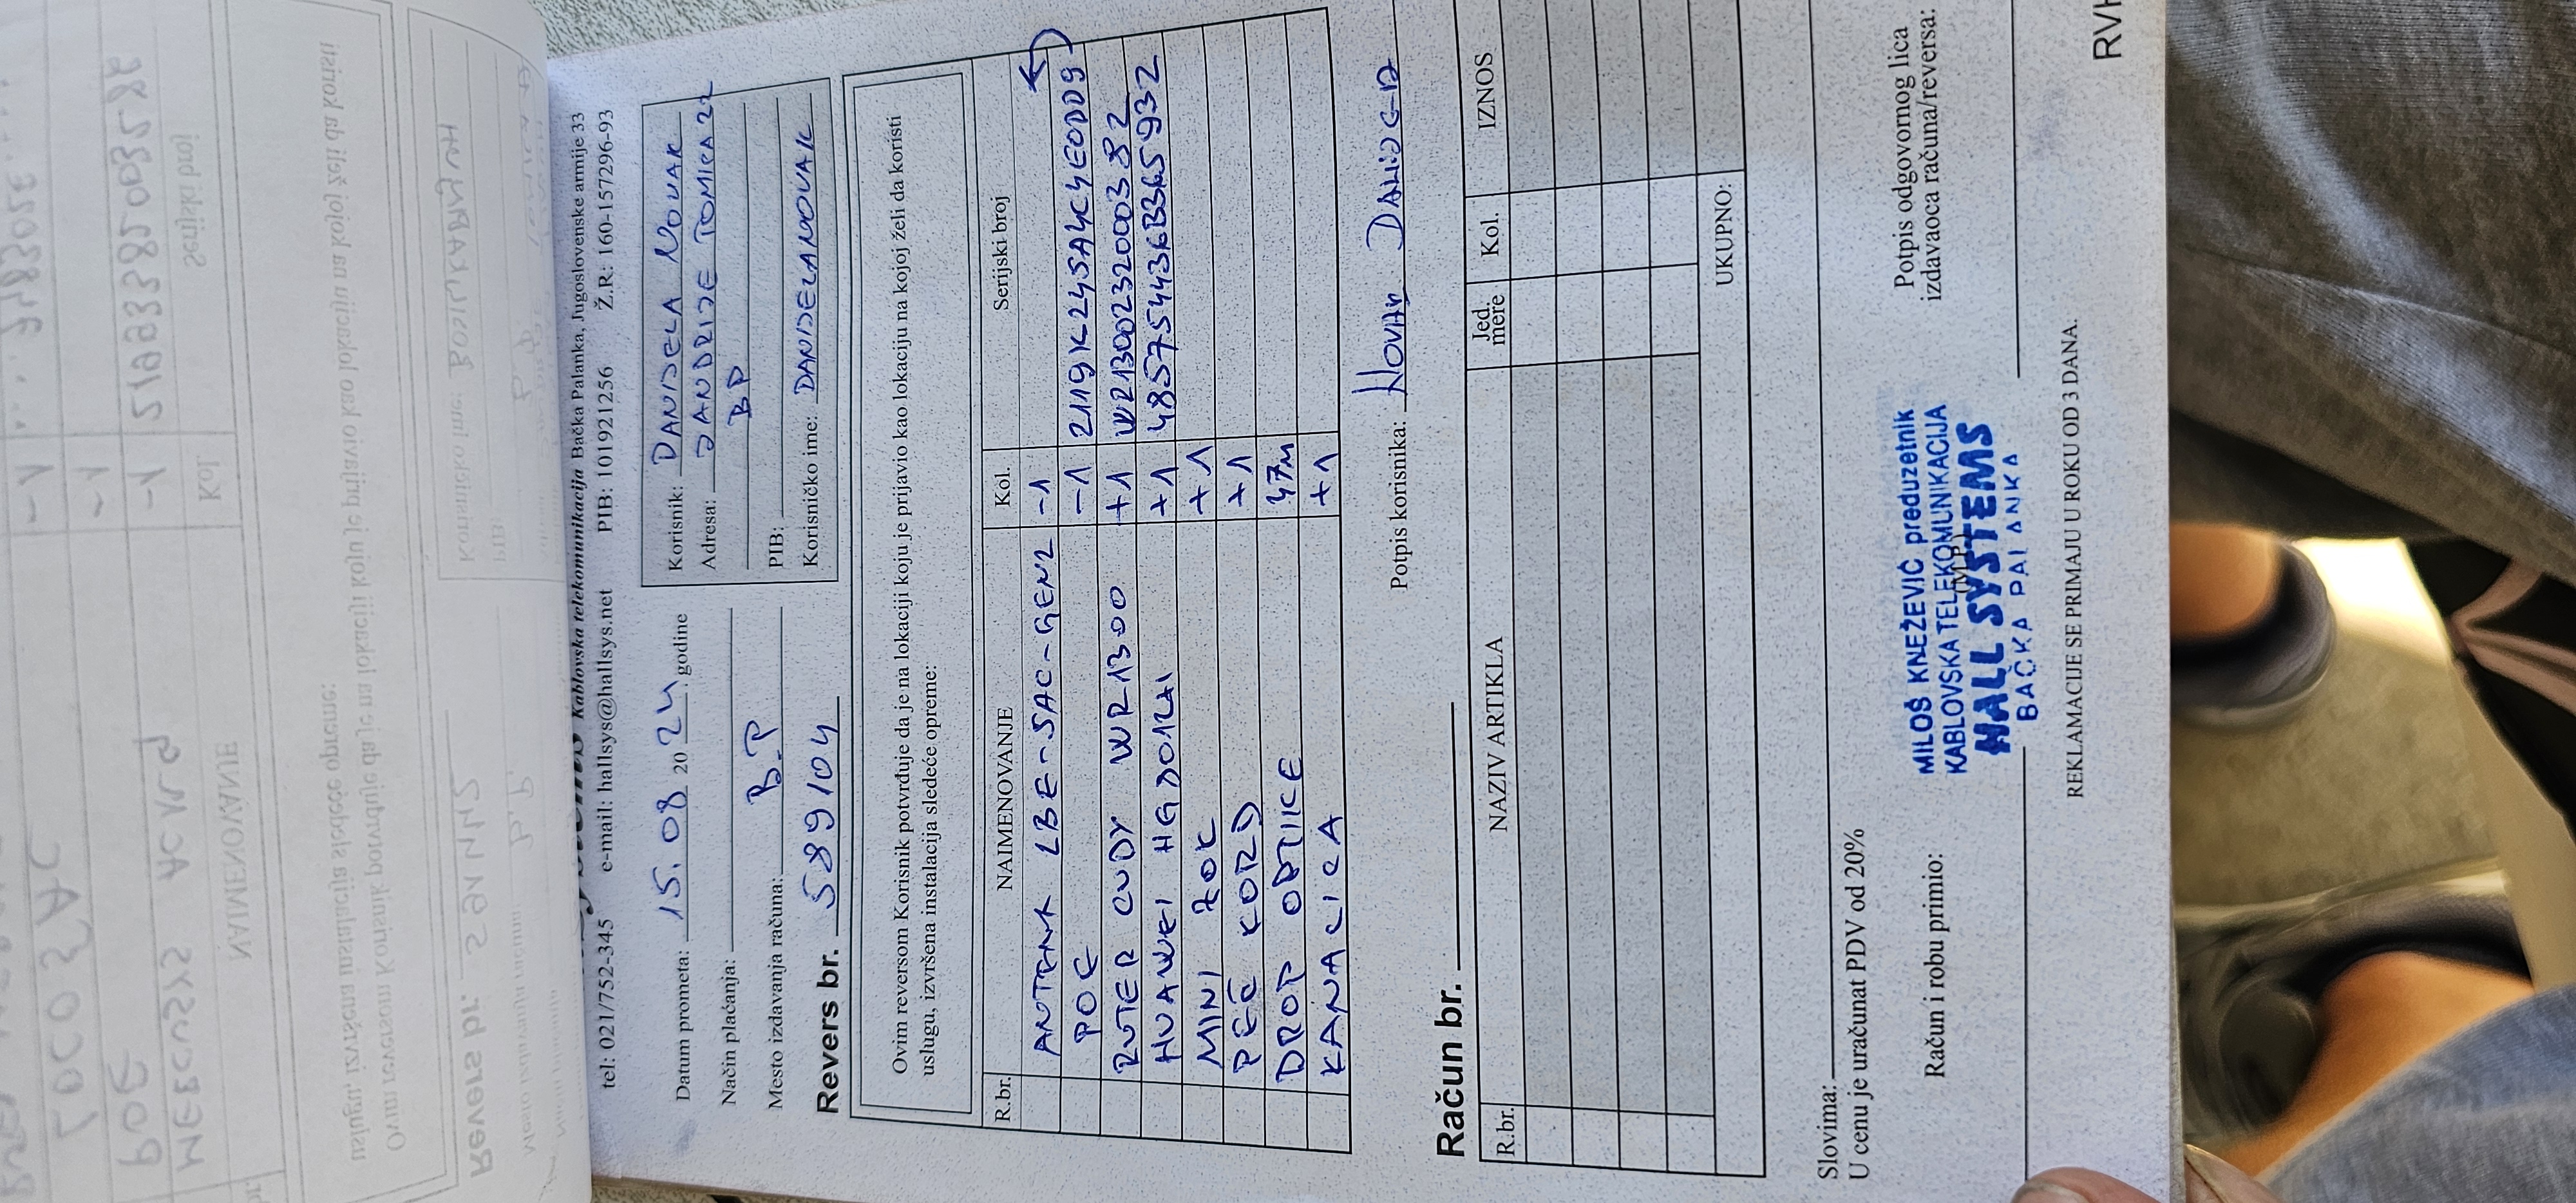 Kablovska telekomunikacija Bačka Palanka, Jugoslovenske armije 33
tel: 021/752-345 e-mail: hallsys@hallsys.net PIB: 101921256 Ž.R: 160-157296-93
Datum prometa: 15.08 2024, godine
Način plaćanja:
Mesto izdavanja računa: B.P
Revers br. 589104
Korisnik: DANIJELA NOVAK
Adresa: JANDRIJE TOMIKA 22
BP
PIB:
Korisničko ime: DANIJELANOVAK
Ovim reversom Korisnik potvrđuje da je na lokaciji koju je prijavio kao lokaciju na kojoj želi da koristi
uslugu, izvršena instalacija sledeće opreme:
R.br. NAIMENOVANJE Kol. Serijski broj
ANTENA LBE-5AC-GEN2 -1
POE -1 2119K245A4C4E0DD9
RUTER CUDY WR1300 +1 W21300232000382
HUAWEI +1 485754436B365932
MINI ZOK +1
PEČ KORD +1
DROP OPTICE 47m
KANALICA +1
Potpis korisnika: Novak
Račun br.
R.br. NAZIV ARTIKLA Jed. mere Kol. IZNOS
UKUPNO:
Slovima:
U cenu je uračunat PDV od 20%
Račun i robu primio:
(M.P)
Potpis odgovornog lica
izdavaoca računa/reversa:
MILOŠ KNEŽEVIĆ preduzetnik
KABLOVSKA TELEKOMUNIKACIJA
HALL SYSTEMS
BAČKA PALANKA
REKLAMACIJE SE PRIMAJU U ROKU OD 3 DANA.